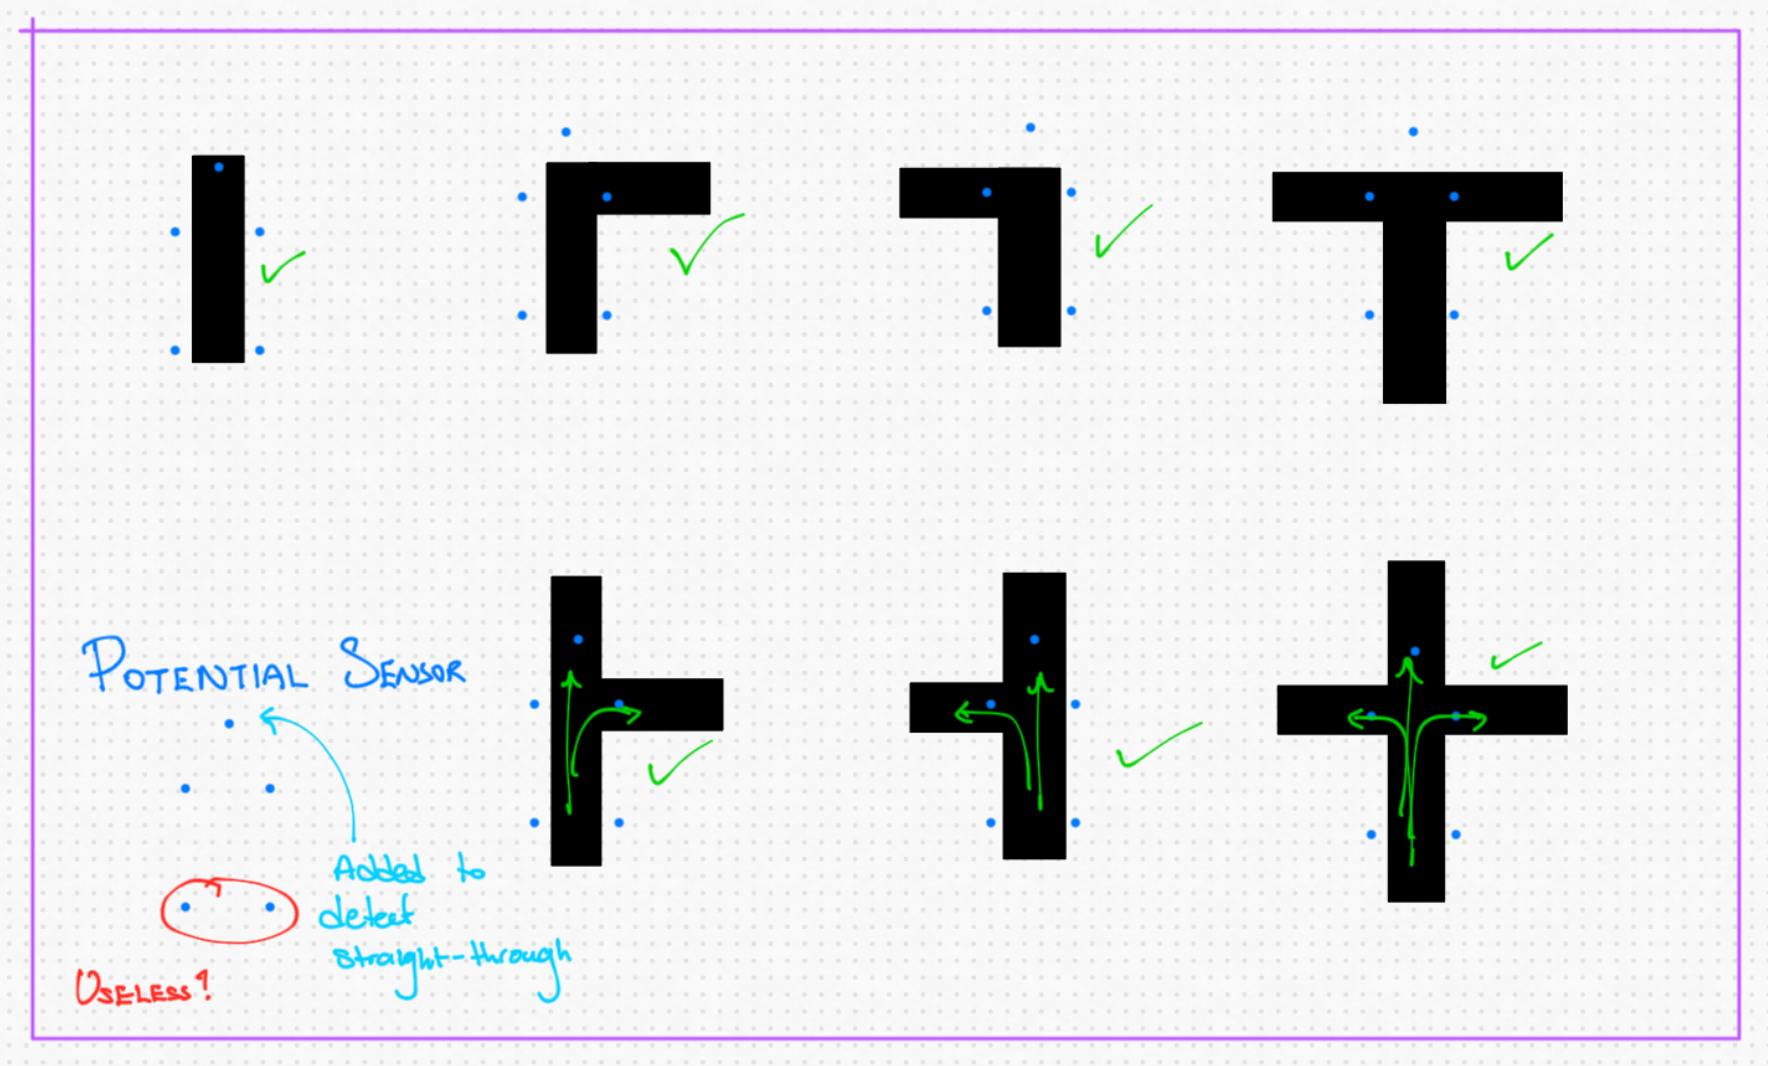 POTENTIAL SENSOR
Added to
detect
straight-through
USELESS?